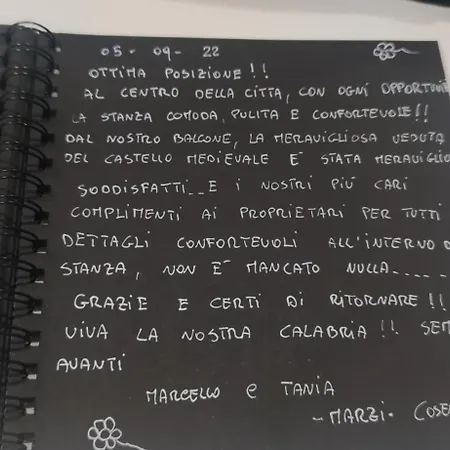 05 - 09 - 22
OTTIMA POSIZIONE!!
AL CENTRO DELLA CITTA, CON OGNI OPPORTUNI
LA STANZA COMODA, PULITA E CONFORTEVOLE!!
DAL NOSTRO BALCONE, LA MERAVIGLIOSA VEDUTA
DEL CASTELLO MEDIEVALE E' STATA MERAVIGLIO
SODDISFATTI__E I NOSTRI PIÙ CARI
COMPLIMENTI AI PROPRIETARI PER TUTTI
DETTAGLI CONFORTEVOLI ALL'INTERNO D
STANZA, NON E' MANCATO NULLA_____
GRAZIE E CERTI DI RITORNARE!!
VIVA LA NOSTRA CALABRIA!! SEM
AVANTI
MARCELLO e TANIA
-MARZI- COSE